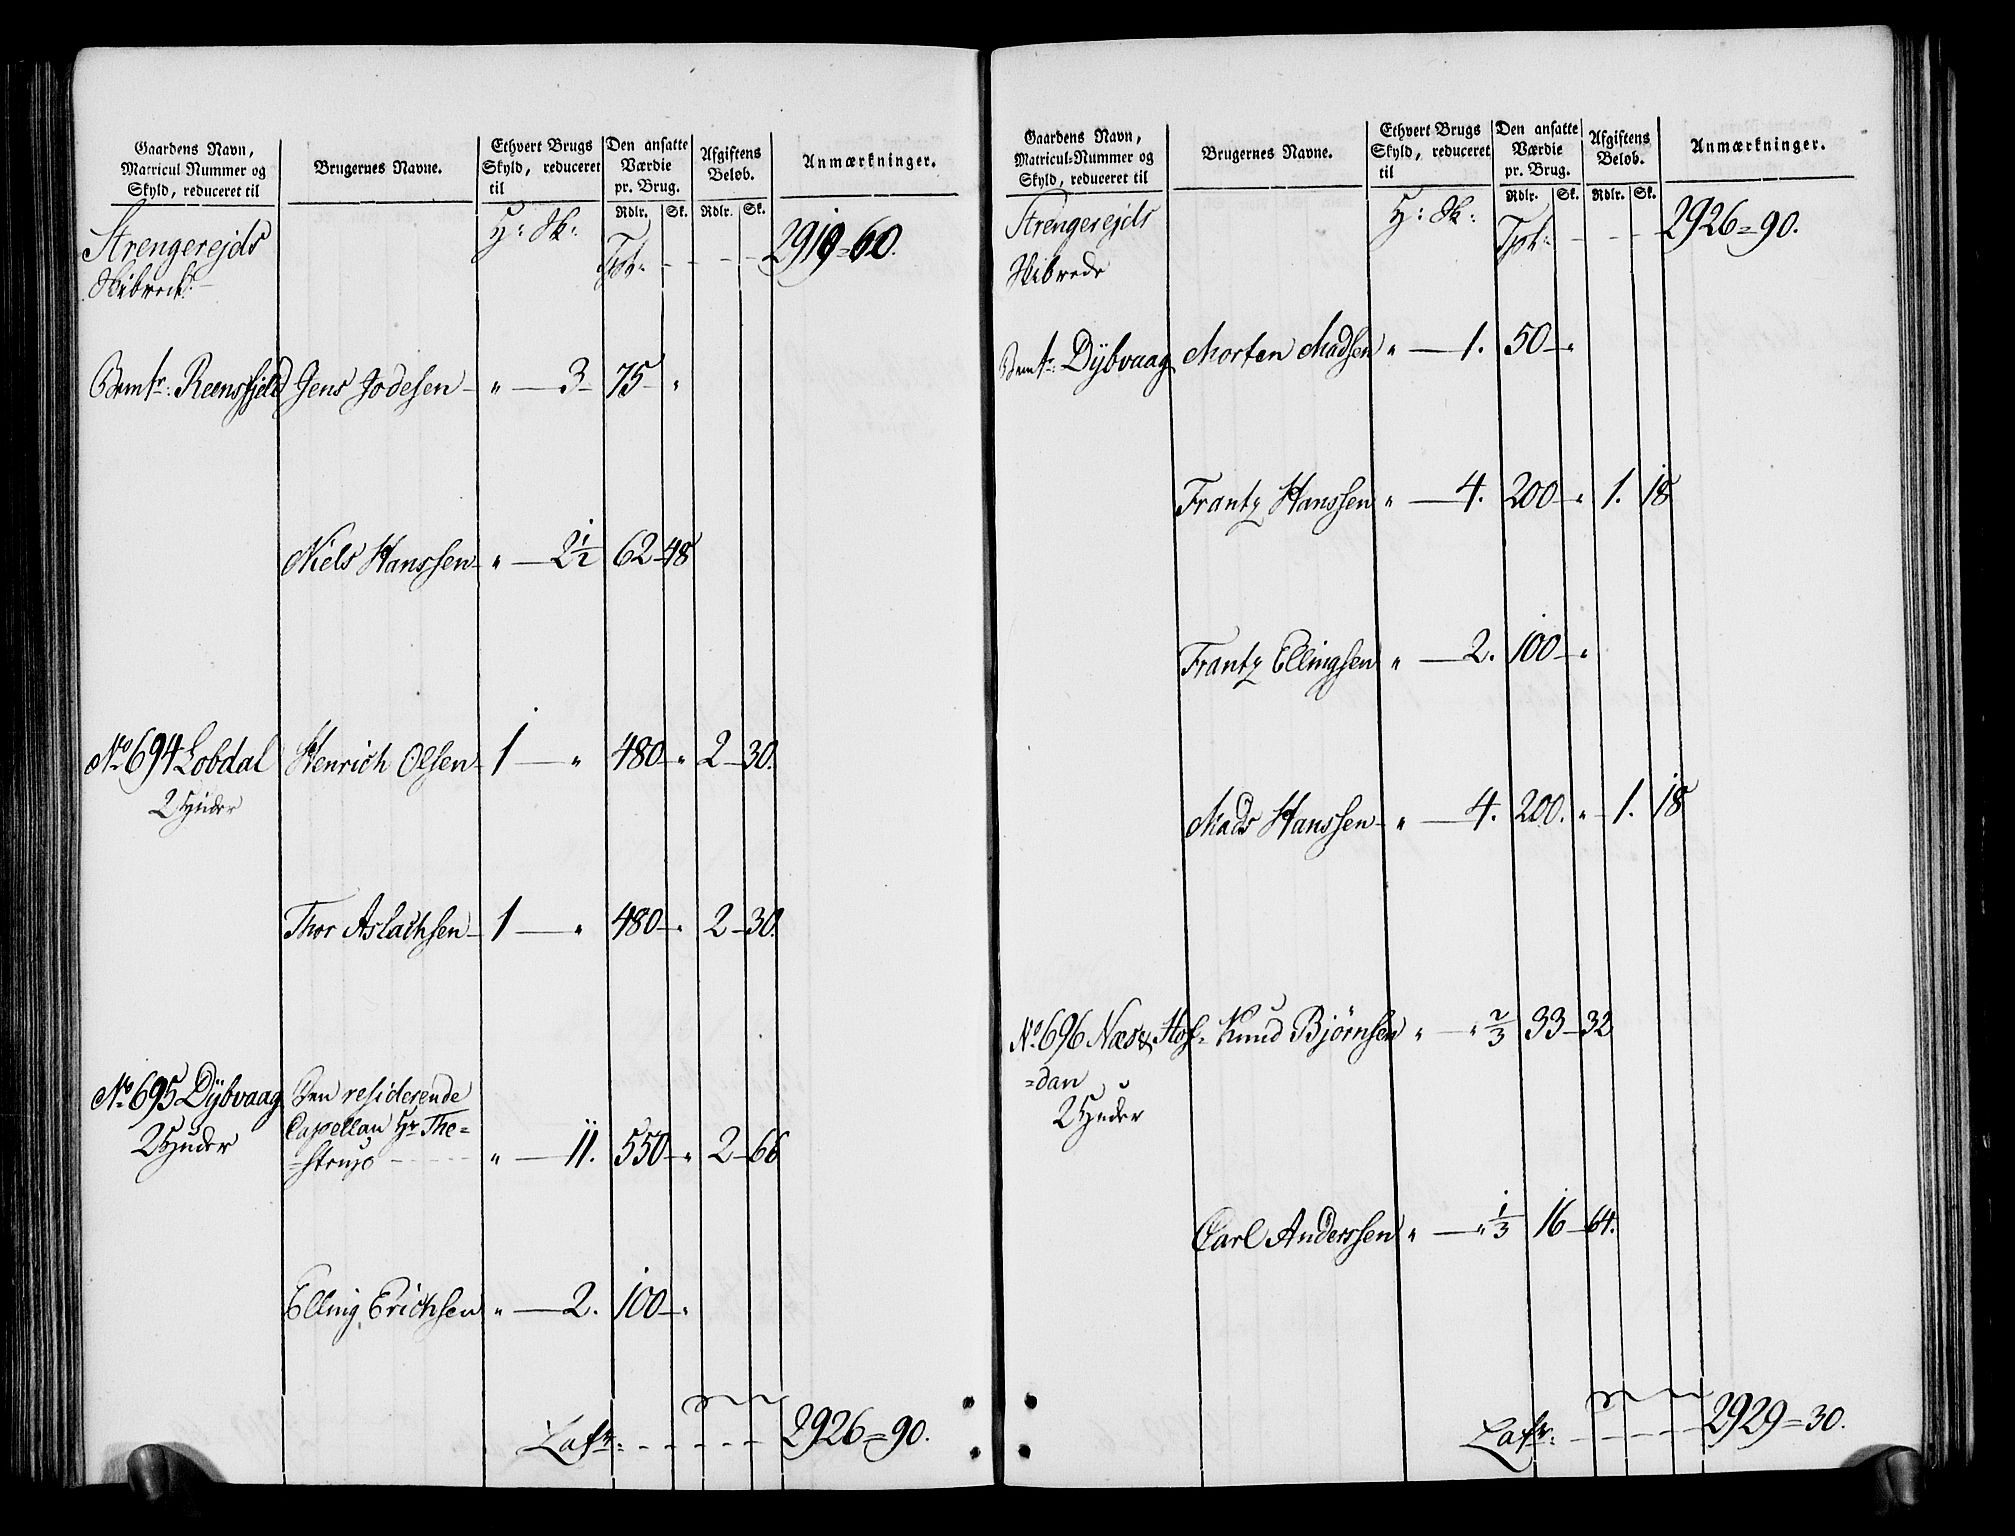 Gaardens Navn,
Matricul Nummer og
Skyld, reduceret til
Brugernes Navne.
Ethvert Brugs
Skyld, reduceret
til
Den ansatte
Værdie
pr. Brug.
Rdlr. Sk.
Afgiftens
Beløb.
Rdlr. Sk.
Anmærkninger.
Strengerejds H: Sk: Tpt: - - - 2919=60.
Skibred:
Bemte: Reensfjeld Jens Jodesen „ — 3 75 „
Niels Hanssen „ — 2 1/2 62 – 48
No 694 Lobdal Henrich Olsen 1 — „ 480 „ 2 – 30.
2 Huder
Thor Aslachsen 1 — „ 480 „ 2 – 30.
No 695 Dÿbvaag Den residerende
2 Huder Capellan Hr The=
=strup „ — 11. 550 „ 2 – 66
Elling Erichsen „ — 2. 100 „
Latr: - - - - - 2926=90.
Gaardens Navn,
Matricul-Nummer og
Skyld, reduceret til
Brugernes Navne.
Ethvert Brugs
Skyld, reduceret
til
Den ansatte
Værdie
pr. Brug.
Rdlr. Sk.
Afgiftens
Beløb.
Rdlr. Sk.
Anmærkninger.
Strengerejds H: Sk: Tpt: - - - 2926=90.
Skibrede
Bemte: Dÿbvaag Morten Madsen „ — 1. 50 „
Frantz Hanssen „ — 4. 200 „ 1. 18
Frantz Ellingsen „ — 2. 100 „
Mads Hanssen „ — 4. 200. „ 1. 18
No 696 Næs & Hof= Knud Bjørnsen „ — „ 2/3 33 – 32
=dan
2 Huder
Carl Anderssen „ — „ 1/3 16 – 64.
Latr: - - - - - 2929=30.